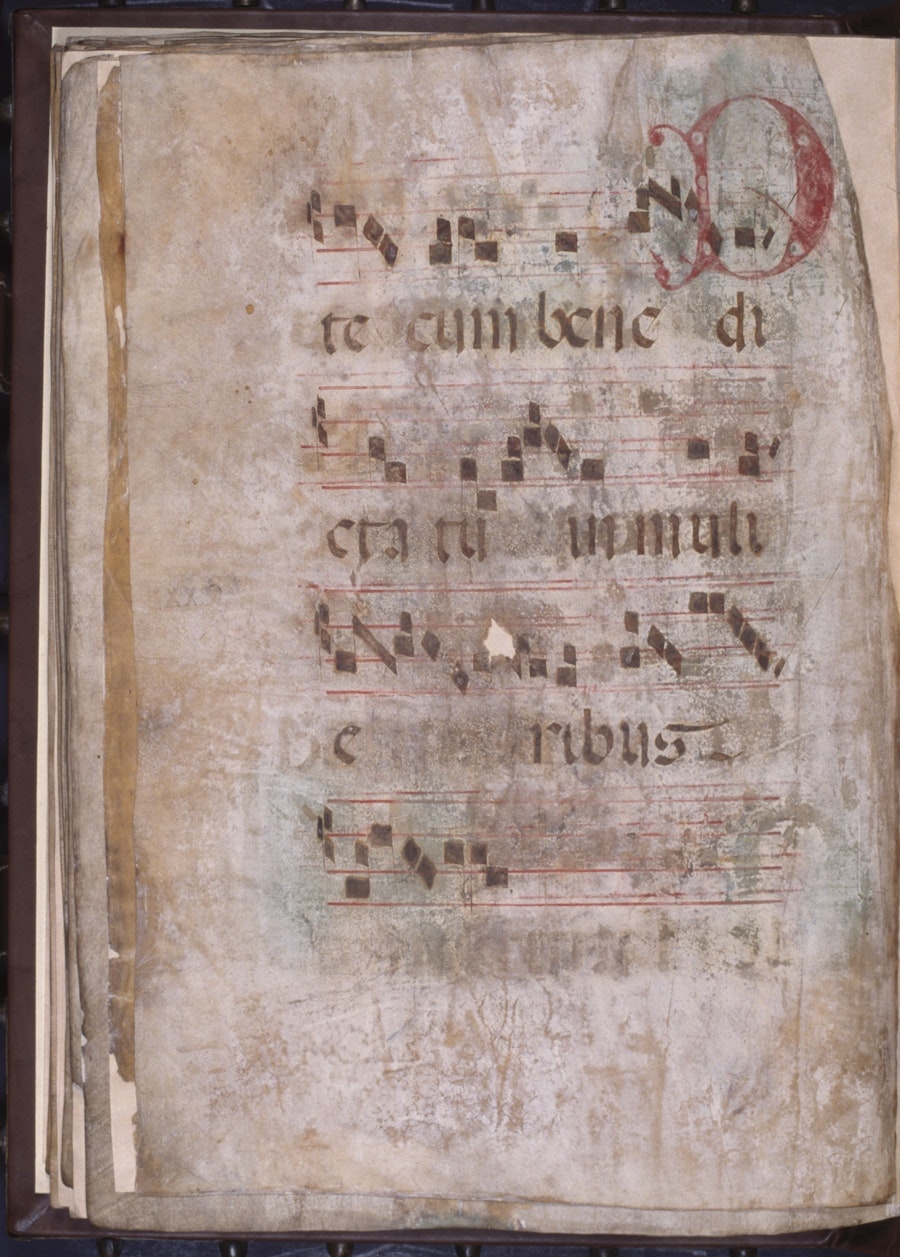 te cum bene di
cta tu in muli
e ribus